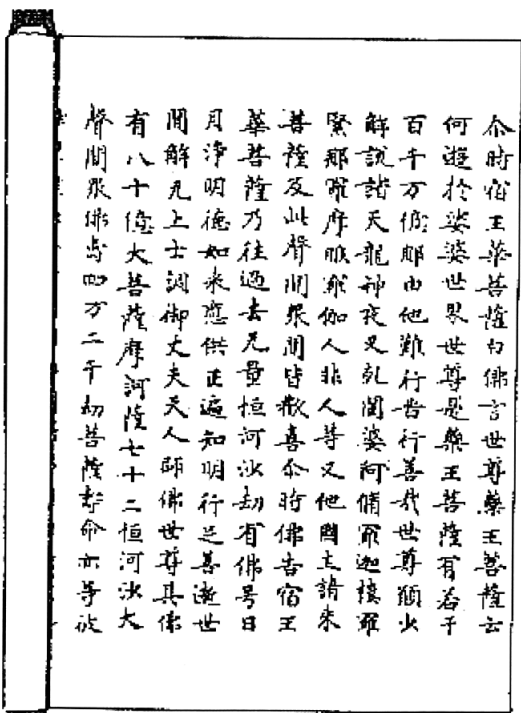 尒時宿王華菩薩白佛言世尊藥王菩薩云
何遊於娑婆世界世尊是藥王菩薩有若干
百千万億那由他難行苦行善哉世尊願少
解說諸天龍神夜叉乹闥婆阿脩羅迦樓羅
緊那羅摩睺羅伽人非人等又他國土諸來
菩薩及此聲聞眾聞皆歡喜尒時佛告宿王
華菩薩乃往過去无量恒河沙劫有佛号日
月淨明德如來應供正遍知明行足善逝世
間解无上士調御丈夫天人師佛世尊其佛
有八十億大菩薩摩訶薩七十二恒河沙大
聲聞眾佛壽四万二千劫菩薩壽命亦等彼